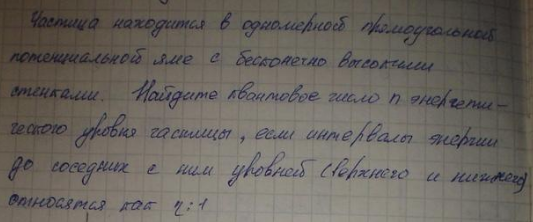 Частица находится в одномерной прямоугольной
потенциальной яме с бесконечно высокими
стенками. Найдите квантовое число n энергети-
ческого уровня частицы, если интервалы энергии
до соседних с ним уровней (верхнего и нижнего)
относятся как η:1